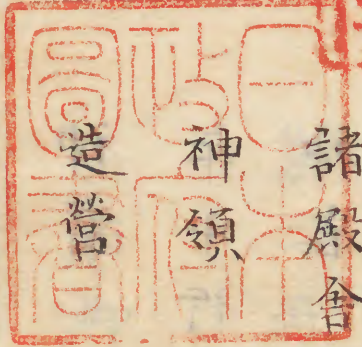 諸殿舎
神領
造營